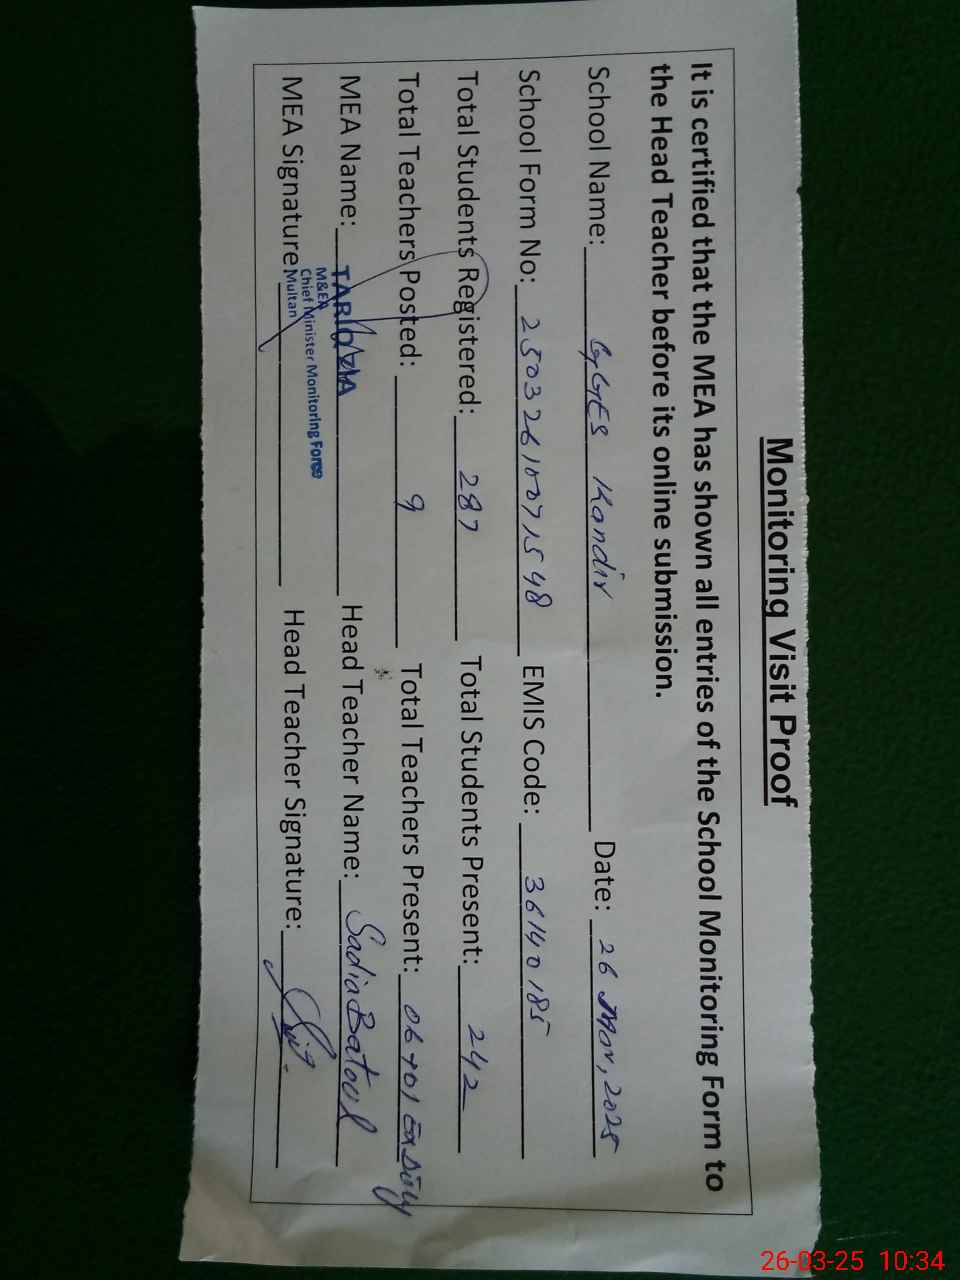 Monitoring Visit Proof
It is certified that the MEA has shown all entries of the School Monitoring Form to
the Head Teacher before its online submission.
School Name: GGES Kandir Date: 26 Mar, 2025
School Form No: 25032610071548 EMIS Code: 36140185
Total Students Registered: 287 Total Students Present: 242
Total Teachers Posted: 9 Total Teachers Present: 06+01 Ex Duty
MEA Name: TARIQ ZIA Head Teacher Name: Sadia Batool
M&EA
Chief Minister Monitoring Force
Multan
MEA Signature Head Teacher Signature:
26-03-25 10:34